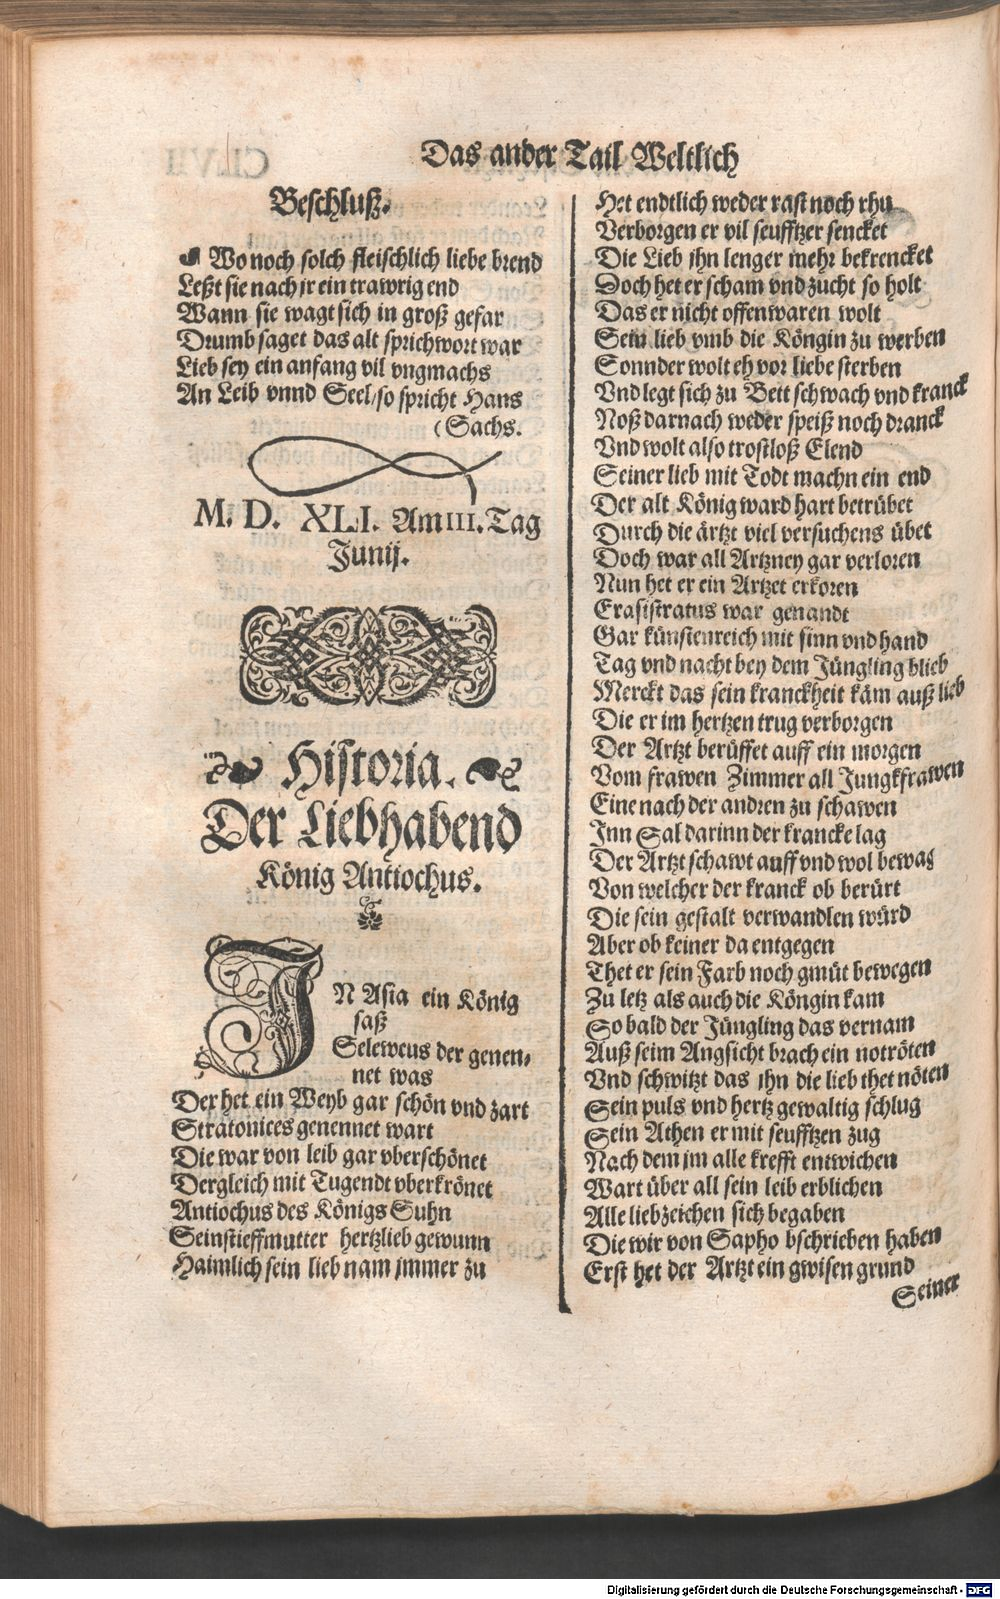 Das ander Tail Weltlich
Beschluß.
Wo noch solch fleischlich liebe brend
Leßt sie nach jr ein trawrig end
Wann sie wagt sich in groß gefar
Drumb saget das alt sprichwort war
Lieb sey ein anfang vil vngmachs
An Leib vnnd Seel/so spricht Hans
(Sachs.
M. D. XLI. Am III. Tag
Junij.
Historia.
Der Liebhabend
König Antiochus.
IN Asia ein König
saß
Seleweus der genen-
net was
Der het ein Weyb gar schön vnd zart
Stratonices genennet wart
Die war von leib gar vberschönet
Dergleich mit Tugendt vberkrönet
Antiochus des Königs Suhn
Sein stieffmutter hertzlieb gewunn
Haimlich sein lieb nam jmmer zu
Het endtlich weder rast noch rhu
Verborgen er vil seufftzer sencket
Die Lieb jhn lenger mehr bekrencket
Doch het er scham vnd zucht so holt
Das er nicht offenwaren wolt
Sein lieb vmb die Köngin zu werben
Sonnder wolt eh vor liebe sterben
Vnd legt sich zu Bett schwach vnd kranck
Noß darnach weder speiß noch dranck
Vnd wolt also trostloß Elend
Seiner lieb mit Todt machn ein end
Der alt König ward hart betrübet
Durch die ärtzt viel versuchens übet
Doch war all Artzney gar verloren
Nun het er ein Artzet erkoren
Erasistratus war genandt
Gar künstenreich mit sinn vnd hand
Tag vnd nacht bey dem Jüngling blieb
Merckt das sein kranckheit käm auß lieb
Die er im hertzen trug verborgen
Der Artzt berüffet auff ein morgen
Vom frawen Zimmer all Jungkfrawen
Eine nach der andren zu schawen
Inn Sal darinn der krancke lag
Der Artzt schawt auff vnd wol bewag
Von welcher der kranck ob berürt
Die sein gestalt verwandlen würd
Aber ob keiner da entgegen
Thet er sein Farb noch gmüt bewegen
Zu letz als auch die Köngin kam
So bald der Jüngling das vernam
Auß seim Angsicht brach ein notröten
Vnd schwitzt das jhn die lieb thet nöten
Sein puls vnd hertz gewaltig schlug
Sein Athen er mit seufftzen zug
Nach dem jm alle krefft entwichen
Wart über all sein leib erblichen
Alle liebzeichen sich begaben
Die wir von Sapho bschrieben haben
Erst het der Artzt ein gwisen grund
Seiner
Digitalisierung gefördert durch die Deutsche Forschungsgemeinschaft - DFG